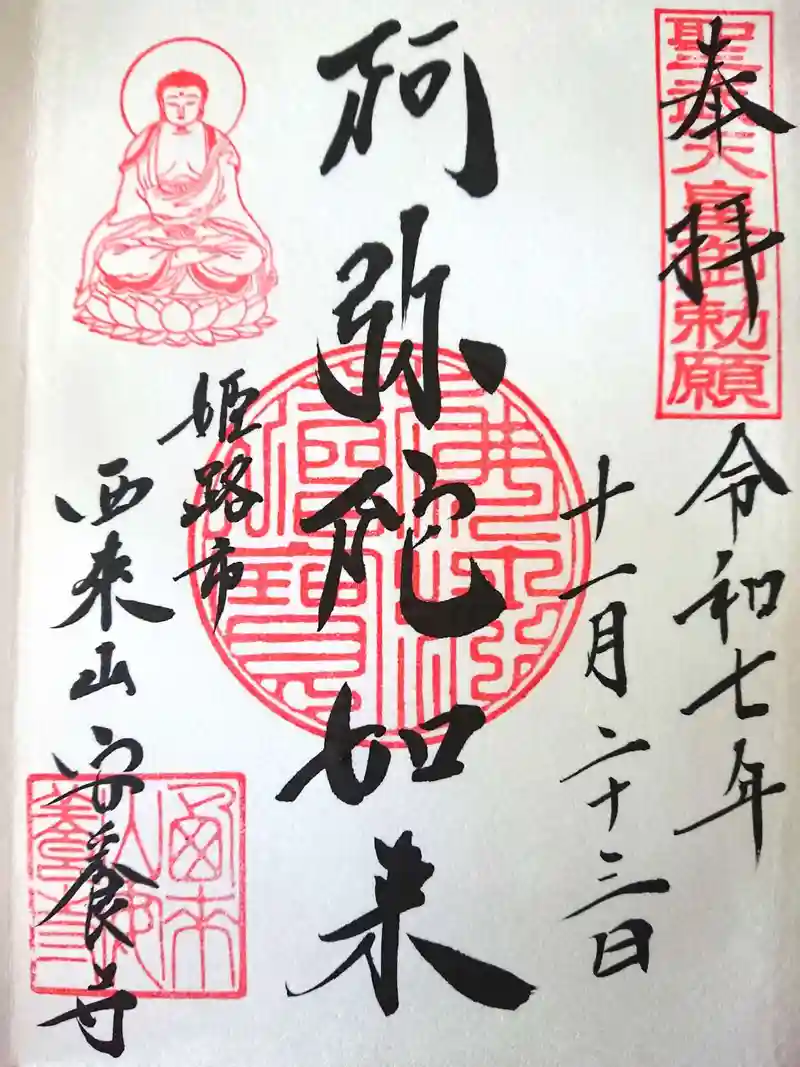 奉拝
聖武天皇御勅願
令和七年
十一月二十三日
阿弥陀如来
佛法僧寶
姫路市
西来山安養寺
西来山安養寺